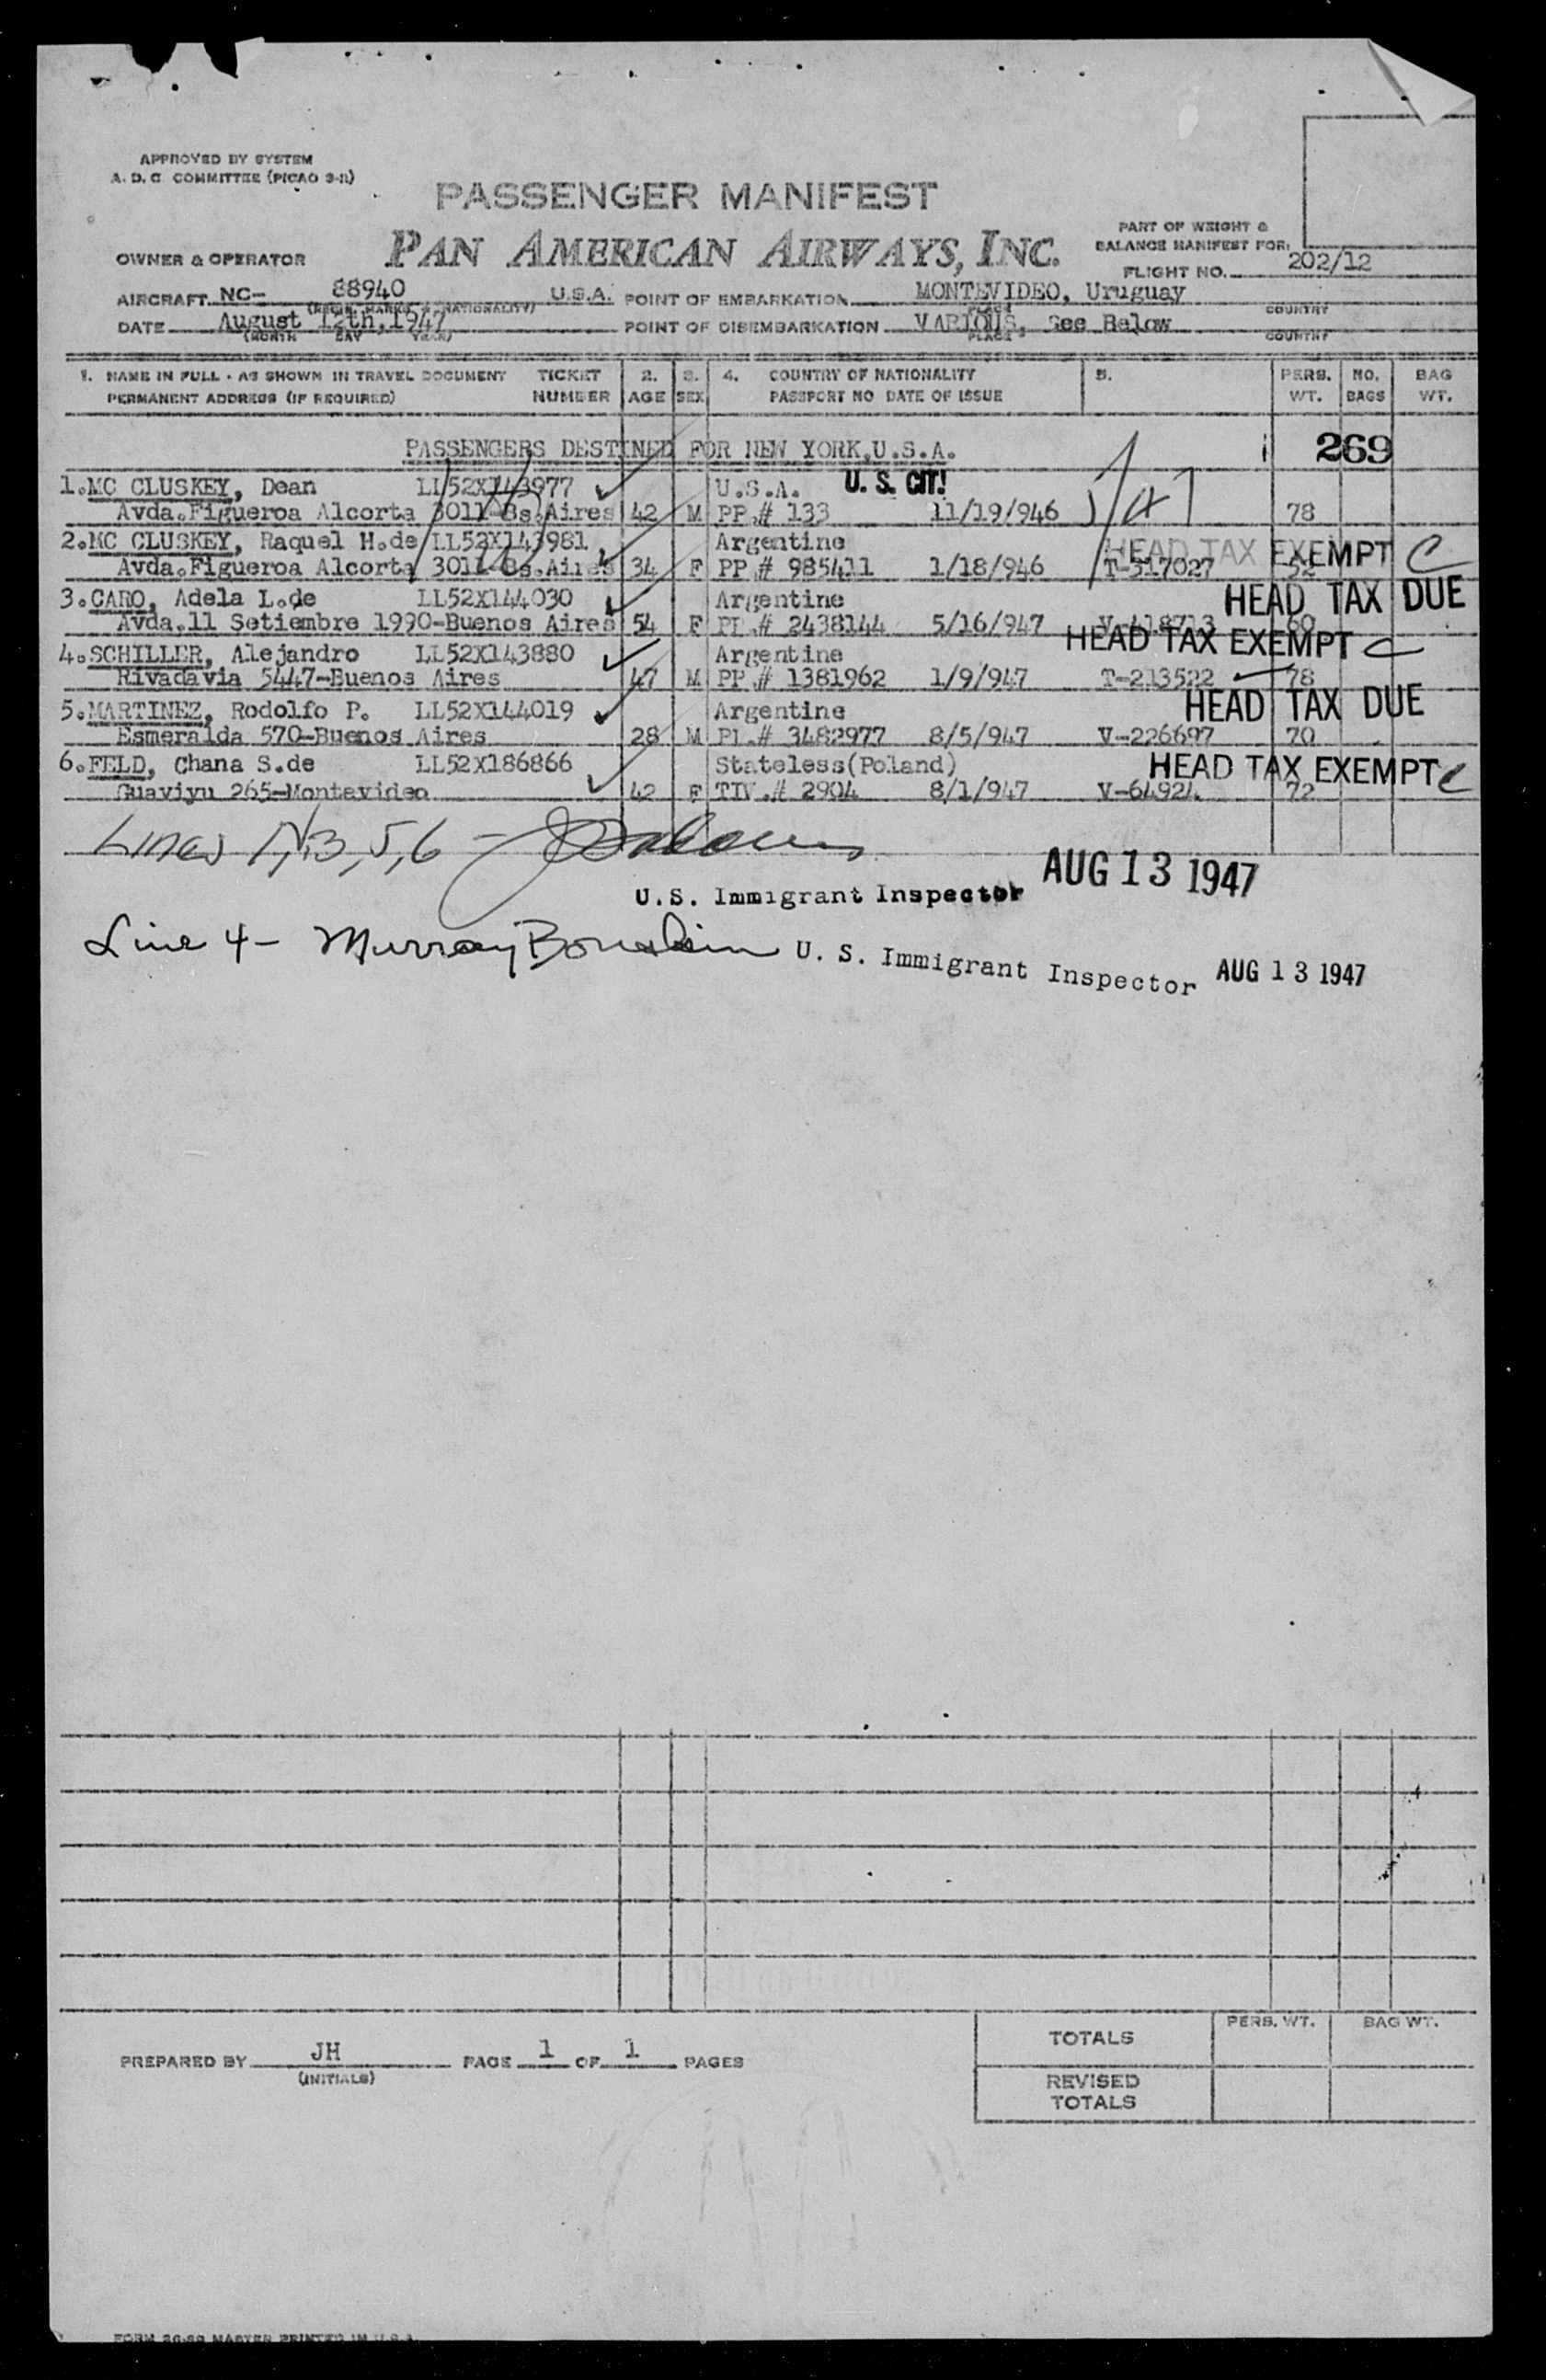 APPROVED BY SYSTEM
A. D. C. COMMITTEE (PICAO 3-R)
PASSENGER MANIFEST
PAN AMERICAN AIRWAYS, INC.
OWNER & OPERATOR
PART OF WEIGHT &
BALANCE MANIFEST FOR:
FLIGHT NO. 202/12
AIRCRAFT NC- 88940 U.S.A. POINT OF EMBARKATION MONTEVIDEO, Uruguay
(REGIS. MARKS & NATIONALITY) PLACE COUNTRY
DATE August 12th,1947 POINT OF DISEMBARKATION VARIOUS, See Below
(MONTH DAY YEAR) PLACE COUNTRY
1. NAME IN FULL - AS SHOWN IN TRAVEL DOCUMENT TICKET 2. 3. 4. COUNTRY OF NATIONALITY 5. PERS. NO. BAG
PERMANENT ADDRESS (IF REQUIRED) NUMBER AGE SEX PASSPORT NO DATE OF ISSUE WT. BAGS WT.
PASSENGERS DESTINED FOR NEW YORK,U.S.A. 269
1.MC CLUSKEY, Dean LL52X143977 U.S.A. U. S. CIT!
Avda.Figueroa Alcorta 3011-Bs.Aires 42 M PP.# 133 11/19/946 78
2.MC CLUSKEY, Raquel H.de LL52X143981 Argentine HEAD TAX EXEMPT C
Avda.Figueroa Alcorta 3011-Bs.Aires 34 F PP.# 985411 1/18/946 T-317027 52
3.CARO, Adela L.de LL52X144030 Argentine HEAD TAX DUE
Avda.11 Setiembre 1990-Buenos Aires 54 F PP.# 2438144 5/16/947 V-418713 60
4.SCHILLER, Alejandro LL52X143880 Argentine HEAD TAX EXEMPT C
Rivadavia 5447-Buenos Aires 47 M PP.# 1381962 1/9/947 T-213522 78
5.MARTINEZ, Rodolfo P. LL52X144019 Argentine HEAD TAX DUE
Esmeralda 570-Buenos Aires 28 M PP.# 3482977 8/5/947 V-226697 70
6.FELD, Chana S.de LL52X186866 Stateless(Poland) HEAD TAX EXEMPT C
Guaviyu 265-Montevideo 42 F TIV.# 2904 8/1/947 V-64924 72
Lines 1, 3, 5, 6 -
U.S. Immigrant Inspector AUG 13 1947
Line 4 - Murray U. S. Immigrant Inspector AUG 13 1947
TOTALS PERS. WT. BAG WT.
PREPARED BY JH PAGE 1 OF 1 PAGES
(INITIALS)
REVISED
TOTALS